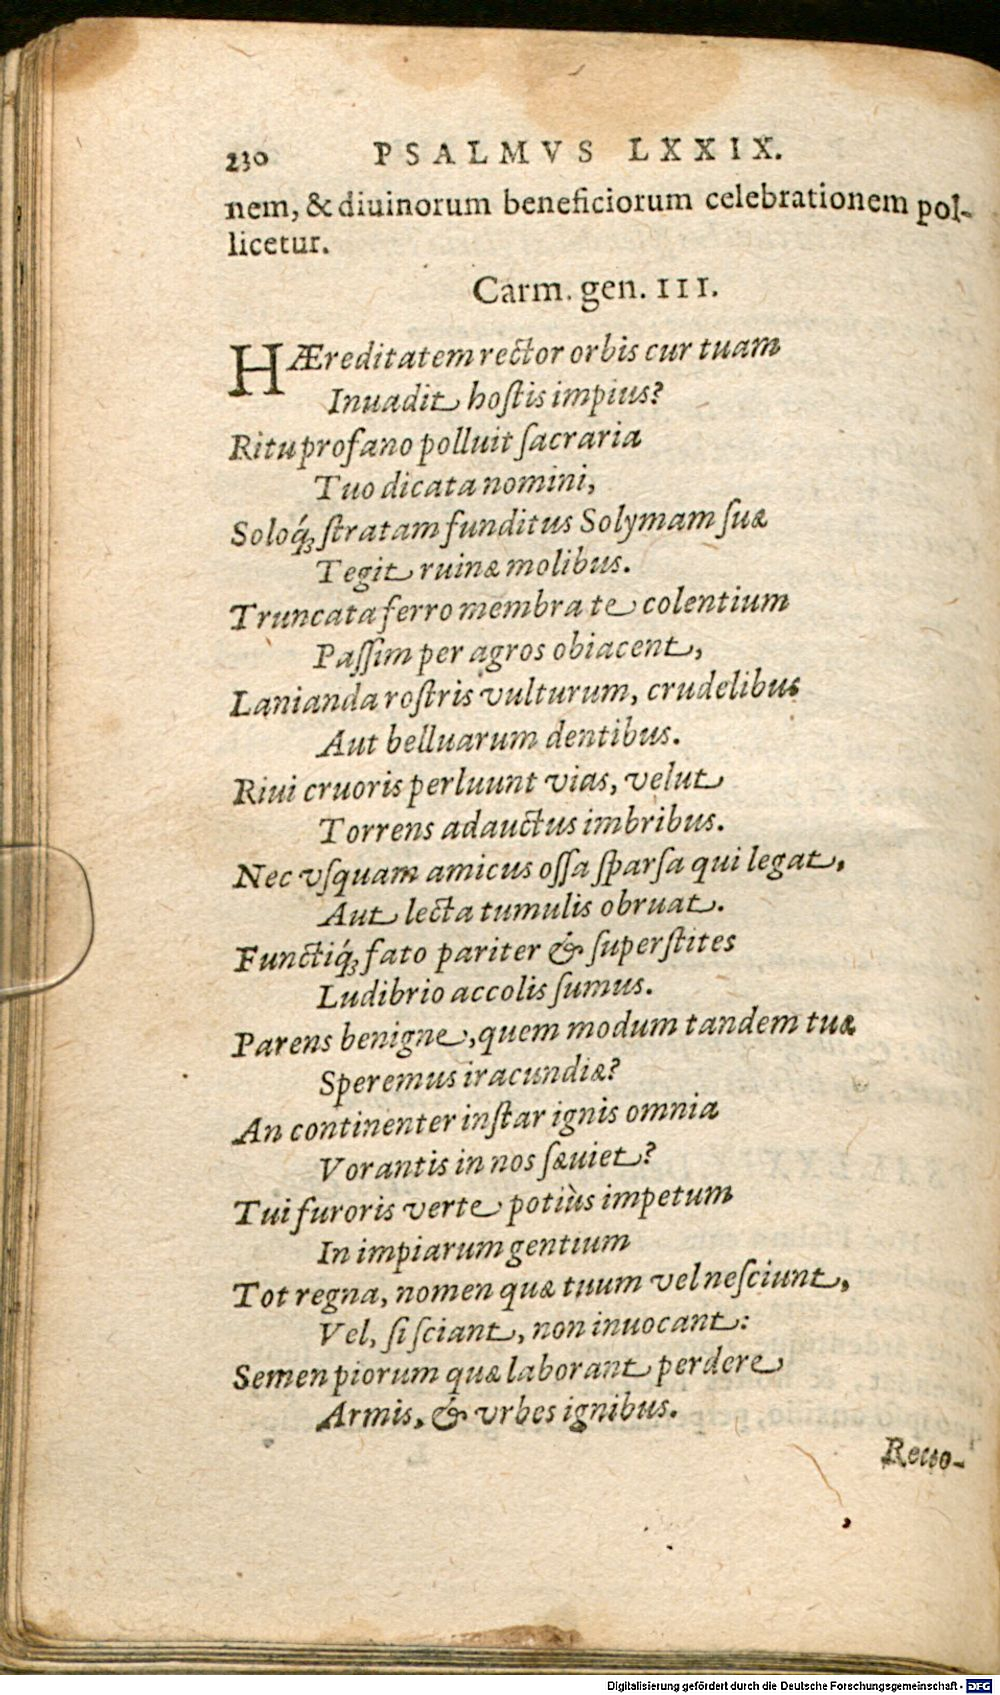 230 PSALMVS LXXIX.
nem, & diuinorum beneficiorum celebrationem pol-
licetur.
Carm. gen. III.
HÆreditatem rector orbis cur tuam
Inuadit hoſtis impius?
Ritu profano polluit ſacraria
Tuo dicata nomini,
Soloq́ꝫ ſtratam funditus Solymam ſuæ
Tegit ruinæ molibus.
Truncata ferro membra te colentium
Paſſim per agros obiacent,
Lanianda roſtris vulturum, crudelibus
Aut belluarum dentibus.
Riui cruoris perluunt vias, velut
Torrens adauctus imbribus.
Nec vſquam amicus oſſa ſparſa qui legat,
Aut lecta tumulis obruat.
Functiq́ꝫ fato pariter & ſuperſtites
Ludibrio accolis ſumus.
Parens benigne, quem modum tandem tuæ
Speremus iracundiæ?
An continenter inſtar ignis omnia
Vorantis in nos ſæuiet?
Tui furoris verte potiùs impetum
In impiarum gentium
Tot regna, nomen quæ tuum vel neſciunt,
Vel, ſi ſciant, non inuocant:
Semen piorum quæ laborant perdere
Armis, & vrbes ignibus.
Reuo-
Digitalisierung gefördert durch die Deutsche Forschungsgemeinschaft - DFG